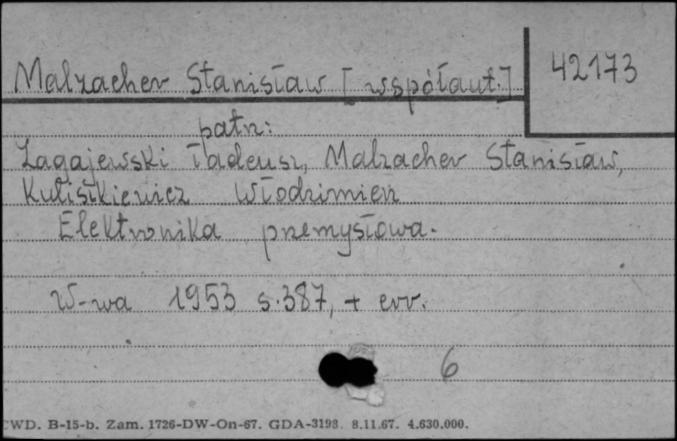 Malzacher Stanisław [współaut.]
42173
patrz:
Zagajewski Tadeusz, Malzacher Stanisław,
Kuliszkiewicz Włodzimierz
Elektronika przemysłowa.
W-wa 1953 s.387, + err.
6
CWD. B-15-b. Zam. 1726-DW-On-67. GDA-3198. 8.11.67. 4.630.000.